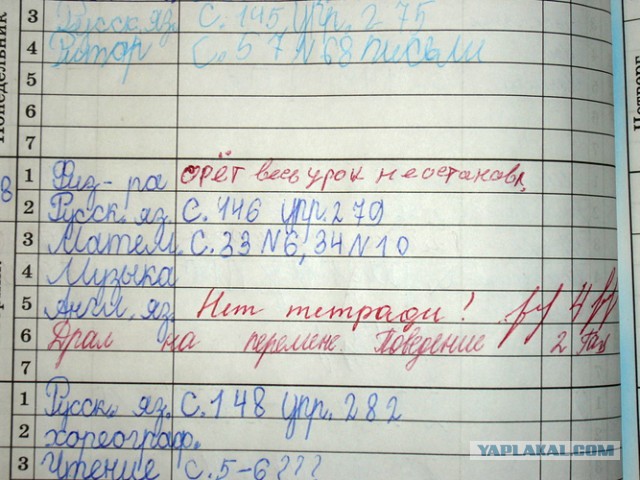 3 Русск. яз. с. 145 упр. 275
4 Ритор с. 57 N 68 письм
5
6
7
Понедельник
8
1 Физ-ра орёт весь урок не останавл.
2 Русск. яз. с. 146 упр. 279
3 Матем. с. 33 N 6, 34 N 10
4 Музыка
5 Англ. яз. Нет тетради! 4
6 Драл на перемене. Поведение 2
7
1 Русск. яз. с. 148 упр. 282
2 хореограф.
3 Чтение с. 5-6???
YAPLAKAL.COM